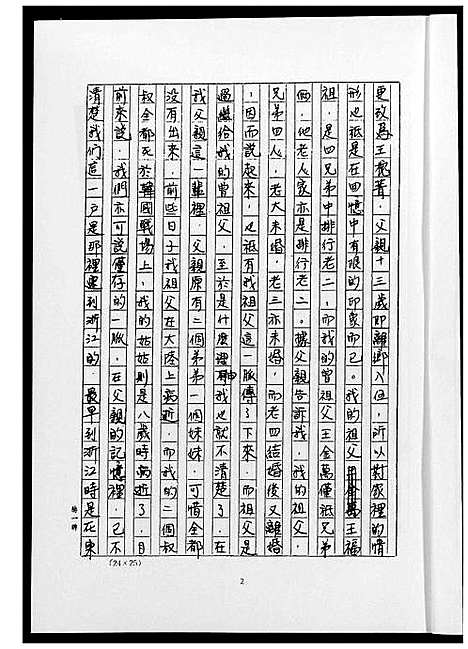 更改為王槐菁，父親十三歲即離鄉入伍，所以對家裡的情
形也祇是在回憶中有限的印象而已。我的祖父王福
祖，是四兄弟中排行老二，而我的曾祖父王金萬僅祇兄弟
倆，他老人家亦是排行老二。據父親告訴我，我的祖父，
兄弟四人，老大未婚，老三亦未婚，而老四結婚後又離婚
，因而說起來，也祇有我祖父這一脈傳了下來，而祖父是
過繼給我的曾祖父，至於是什麼理由我也就不清楚了，在
我父親這一輩裡，父親原有二個弟弟一個妹妹，可惜全都
沒有出來，前些日子我祖父在大陸上病逝，而我的二個叔
叔全都死於韓國戰場上，我的姑姑則是八歲時病逝了，目
前來說，我們亦可說僅存的一脈，在父親的記憶裡，已不
清楚我們這一戶是那裡遷到浙江的，最早到浙江時是在東
(24×25)
2